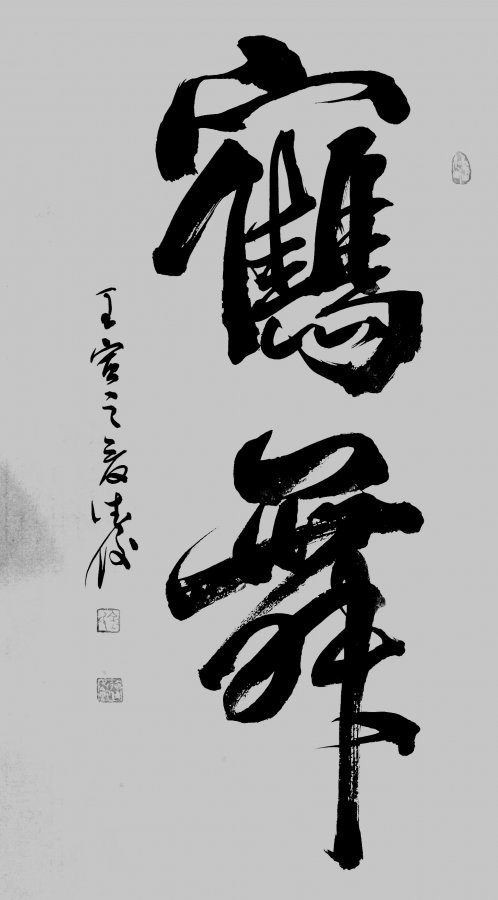 鶴舞
壬寅之夏